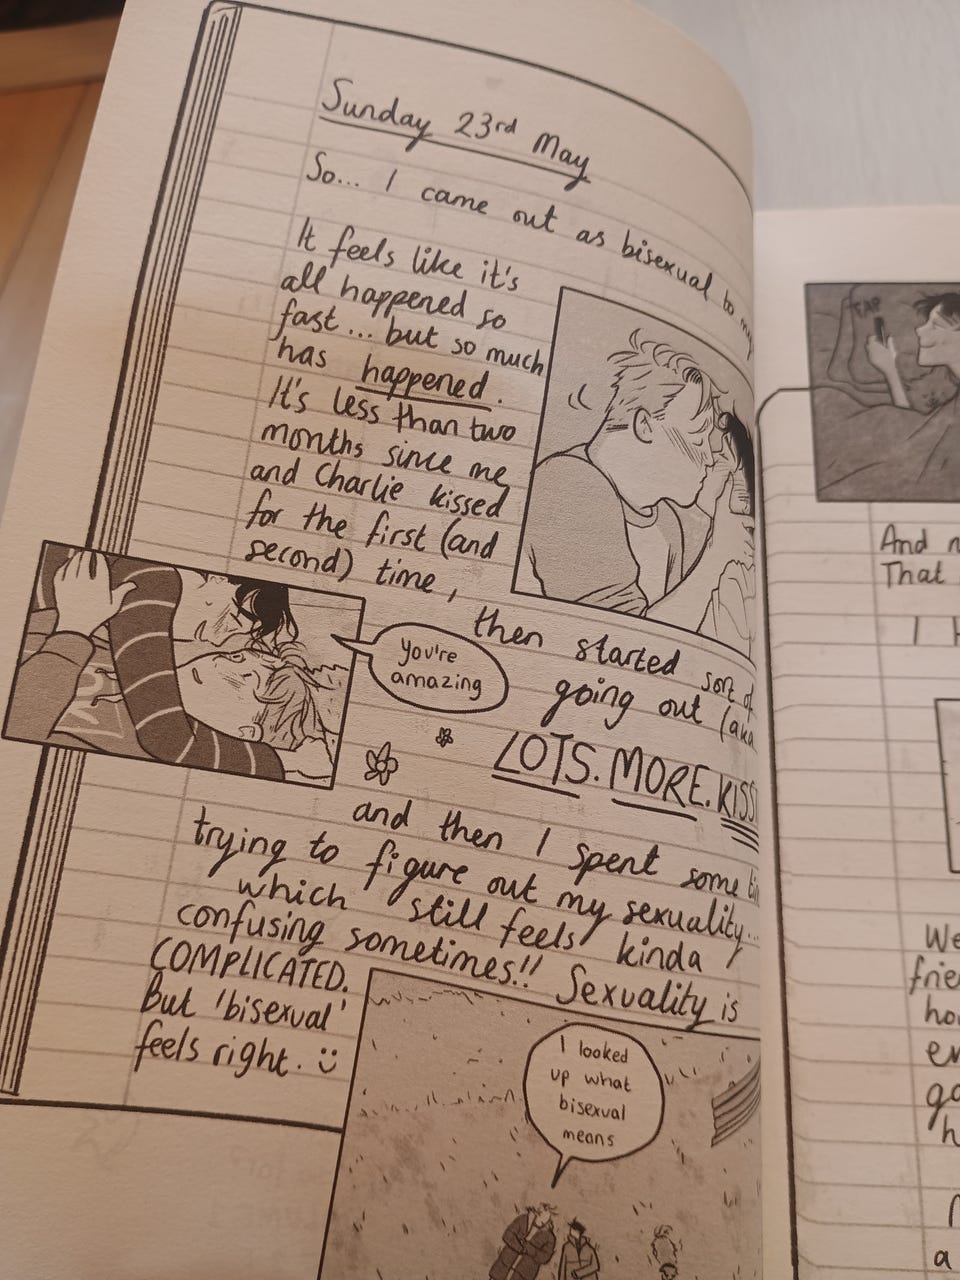 Sunday 23rd May
So... I came out as bisexual to my
It feels like it's
all happened so
fast... but so much
has happened.
It's less than two
months since me
and Charlie kissed
for the first (and
second) time,
then started sort of
going out (aka
LOTS. MORE. KISS
you're
amazing
and then I spent some
trying to figure out my sexuality...
which still feels kinda
confusing sometimes!! Sexuality is
COMPLICATED.
But 'bisexual'
feels right. :)
I looked
up what
bisexual
means
TAP
And
That
I
We
frie
ho
a